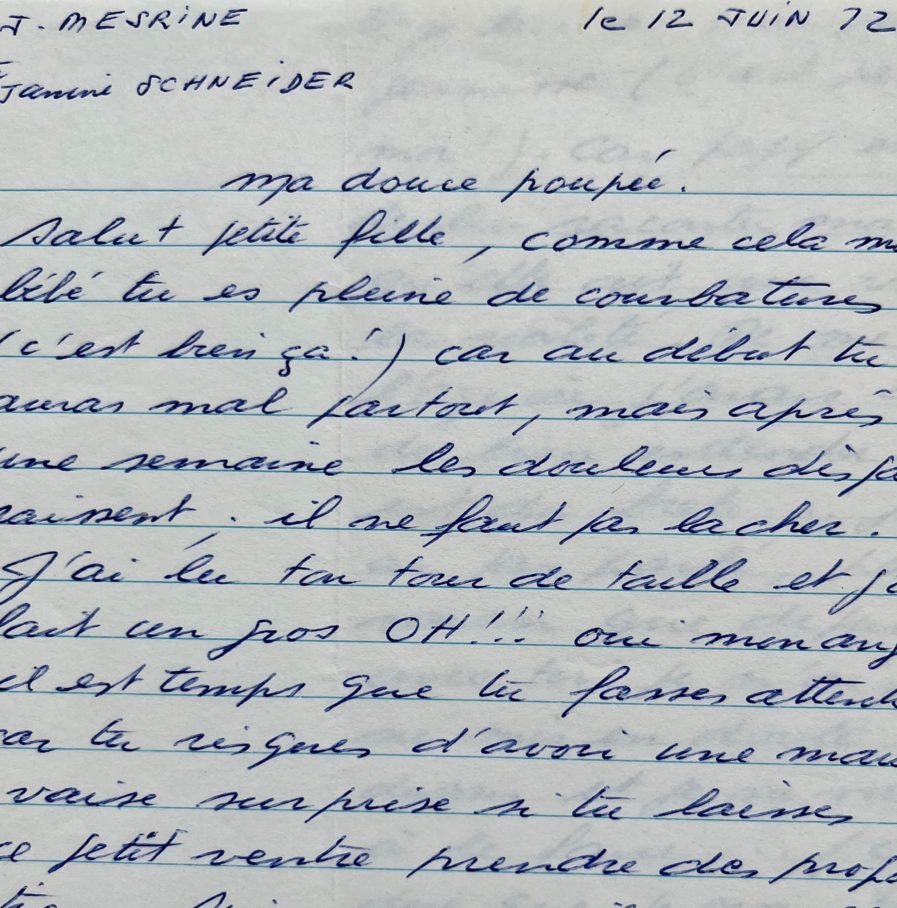 J. MESRINE le 12 JUIN 72
Janine SCHNEIDER
ma douce poupée.
Salut petite fille, comme cela m
bébé tu es pleine de courbatures
(c'est bien ça!) car au début tu
auras mal partout, mais après
une semaine les douleurs dispa
raissent, il ne faut pas lacher.
J'ai lu ton tour de taille et j'
fait un gros OH!!! oui mon ang
il est temps que tu fasses attent
car tu risques d'avoir une mau
vaise surprise si tu laisses
ce petit ventre prendre des prop